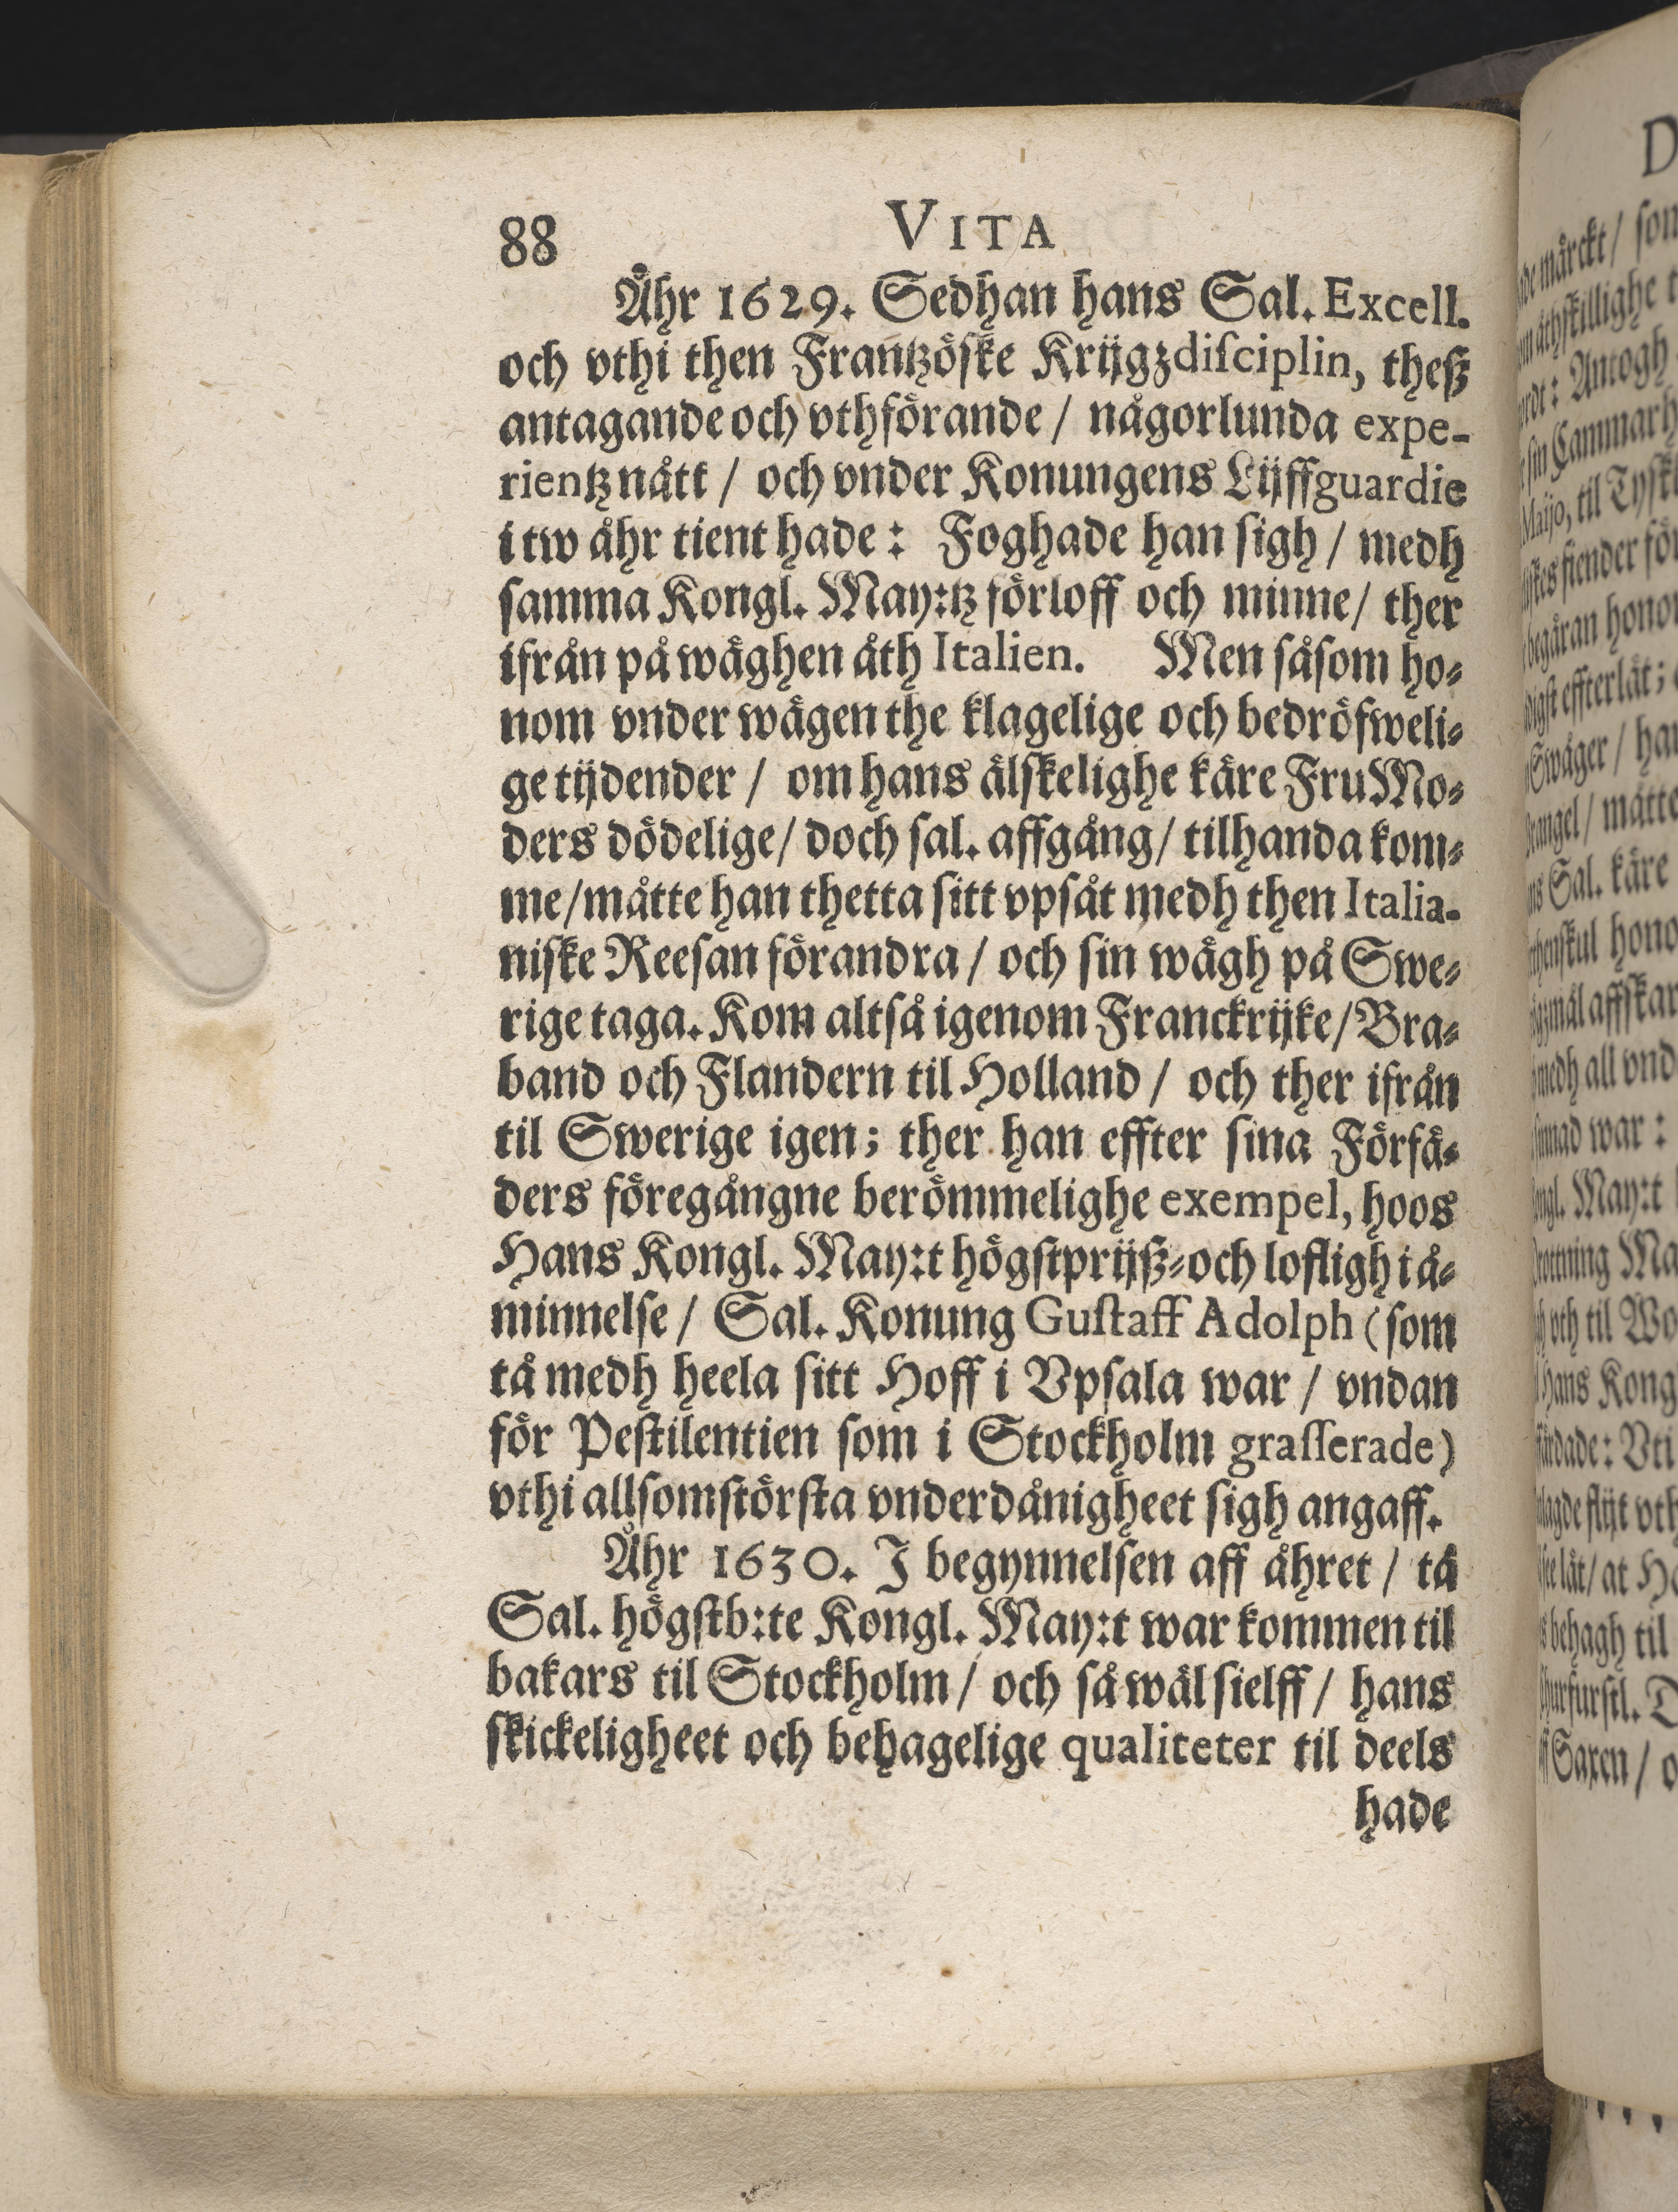 88 VITA
Åhr 1629. Sedhan hans Sal. Excell.
och vthi then Frantzöſke Krijgzdiſciplin, theſz
antagande och vthförande / någorlunda expe-
rientz nått / och vnder Konungens Lijffguardie
i tw åhr tient hade: Foghade han ſigh / medh
ſamma Kongl. May:tz förloff och minne / ther
ifrån på wäghen åth Italien. Men såſom ho-
nom vnder wägen the klagelige och bedröfweli-
ge tijdender / om hans älſkelighe käre Fru Mo-
ders dödelige / doch ſal. affgång / tilhanda kom-
me / måtte han thetta ſitt vpſåt medh then Italia-
niſke Reeſan förandra / och ſin wägh på Swe-
rige taga. Kom altſå igenom Franckrijke / Bra-
band och Flandern til Holland / och ther ifrån
til Swerige igen; ther han effter ſina Förfä-
ders föregångne berömmelighe exempel, hoos
Hans Kongl. May:t högſtprijſz-och lofligh i å-
minnelſe / Sal. Konung Guſtaff Adolph (ſom
tå medh heela ſitt Hoff i Vpſala war / vndan
för Peſtilentien ſom i Stockholm graſſerade)
vthi allſomſtörſta vnderdånigheet ſigh angaff.
Åhr 1630. J begynnelſen aff åhret / tå
Sal. högſtb:te Kongl. May:t war kommen til
bakars til Stockholm / och ſå wäl ſielff / hans
ſkickeligheet och behagelige qualiteter til deels
hade
D
märckt / ſom
åthſkillighe
: Antogh
ſin Cammarh
Maijo, til Tyſk
fiender för
begäran hono
effterlät;
Swåger / ha
/ måtte
Sal. käre
hono
affſkar
medh all vnd
war :
May:t
Ma
vth til Wo
Hans Kong
: Vti
flijt vth
lät / at H
behagh til
D
Saxen / o